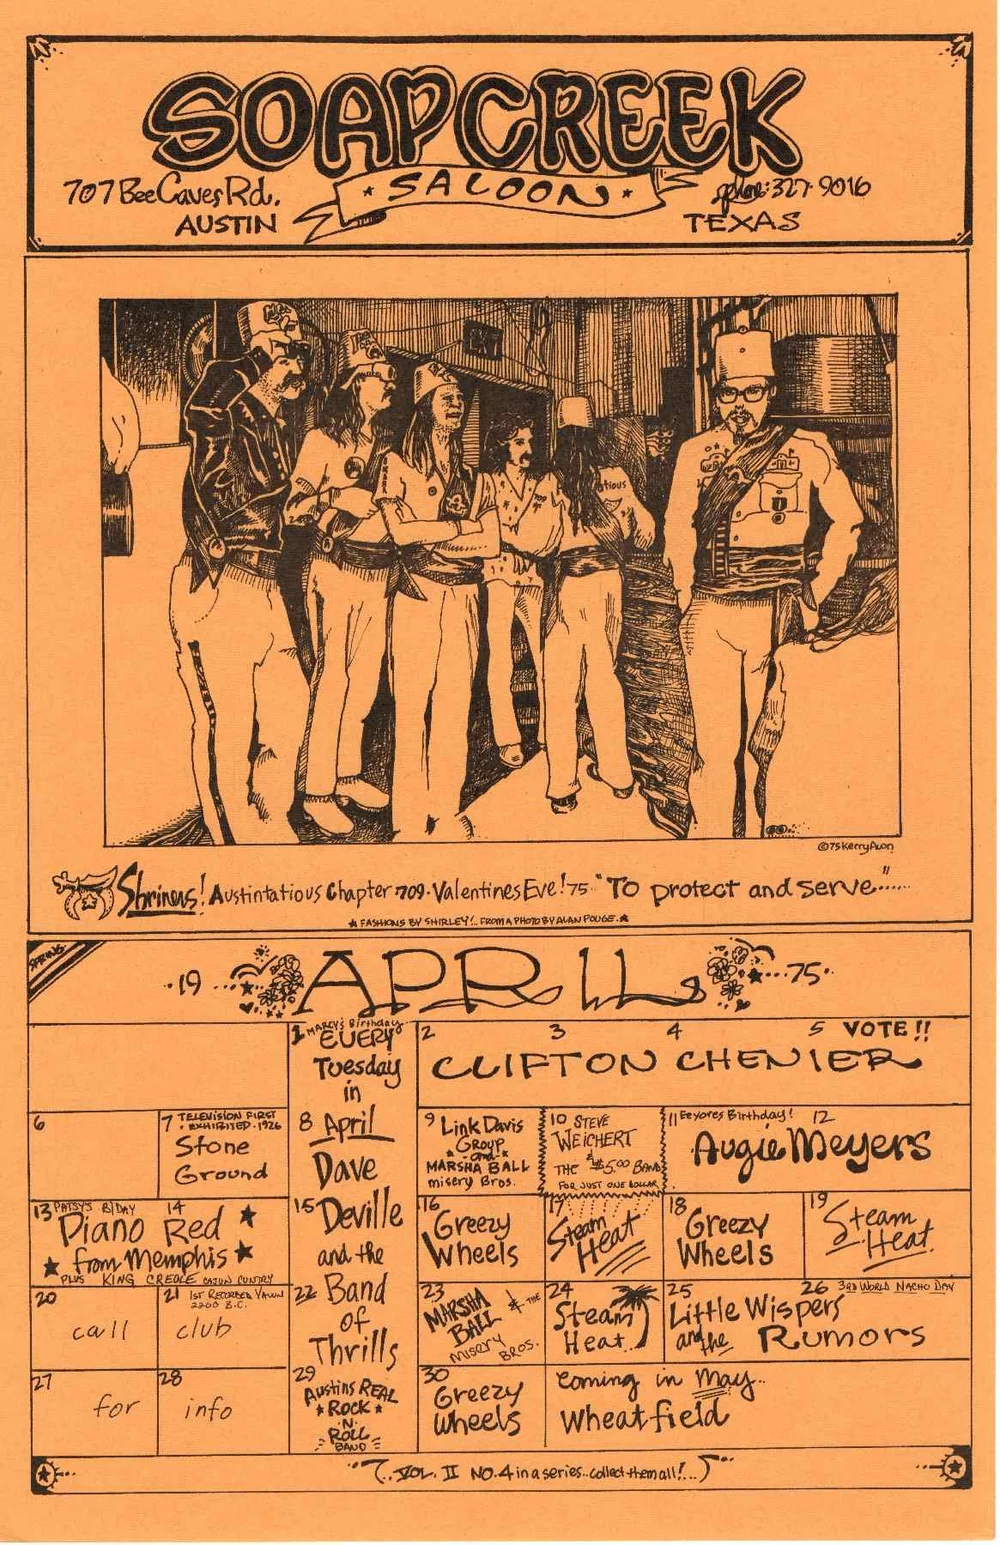 SOAP CREEK
SALOON
707 Bee Caves Rd.
AUSTIN
phone: 327-9016
TEXAS
tatious
©75 Kerry Awn
Shriners! Austintatious Chapter 709 · Valentines Eve! 75 "To protect and serve"......
★ FASHIONS BY SHIRLEY!.. FROM A PHOTO BY ALAN POUGE. ★
SPRING
·19 APRIL 75·
1 MARCY'S Birthday
EVERY
Tuesday
in
8 April
Dave
15 Deville
and the
22 Band
of
Thrills
29
Austins REAL
★ Rock ★
'N'
ROLL
BAND
2 3 4 5 VOTE!!
CLIFTON CHENIER
6
7 TELEVISION FIRST
EXHIBITED · 1926
Stone
Ground
9 Link Davis
Group
★ and ★
MARSHA BALL
misery Bros.
10 STEVE
WEICHERT
&
THE $5.00 BAND
FOR JUST ONE DOLLAR
11 Eeyores Birthday! 12
Augie Meyers
13 PATSY'S B/DAY 14
Piano Red ★
★ from Memphis ★
PLUS KING CREOLE CAJUN CUNTRY
16
Greezy
Wheels
17
Steam
Heat
18
Greezy
Wheels
19
Steam
Heat
20
call
21 1ST RECORDED YAWN
2200 B.C.
club
23
MARSHA & THE
BALL
MISERY BROS.
24
Steam
Heat
25 26 3RD WORLD NACHO DAY
Little Wispers
and the Rumors
27
for
28
info
30
Greezy
Wheels
coming in May..
Wheatfield
VOL. II NO. 4 in a series.. collect them all!...